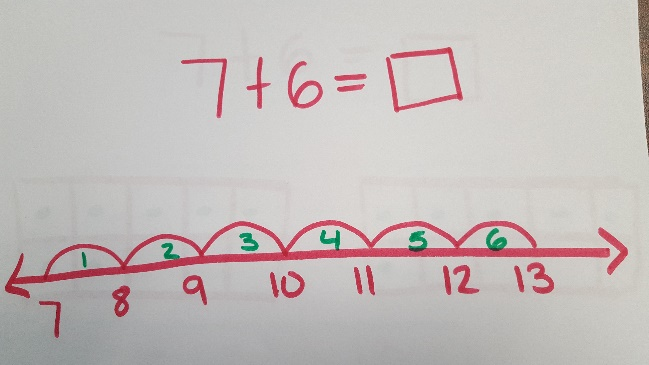 7+6=□
1 2 3 4 5 6
7 8 9 10 11 12 13